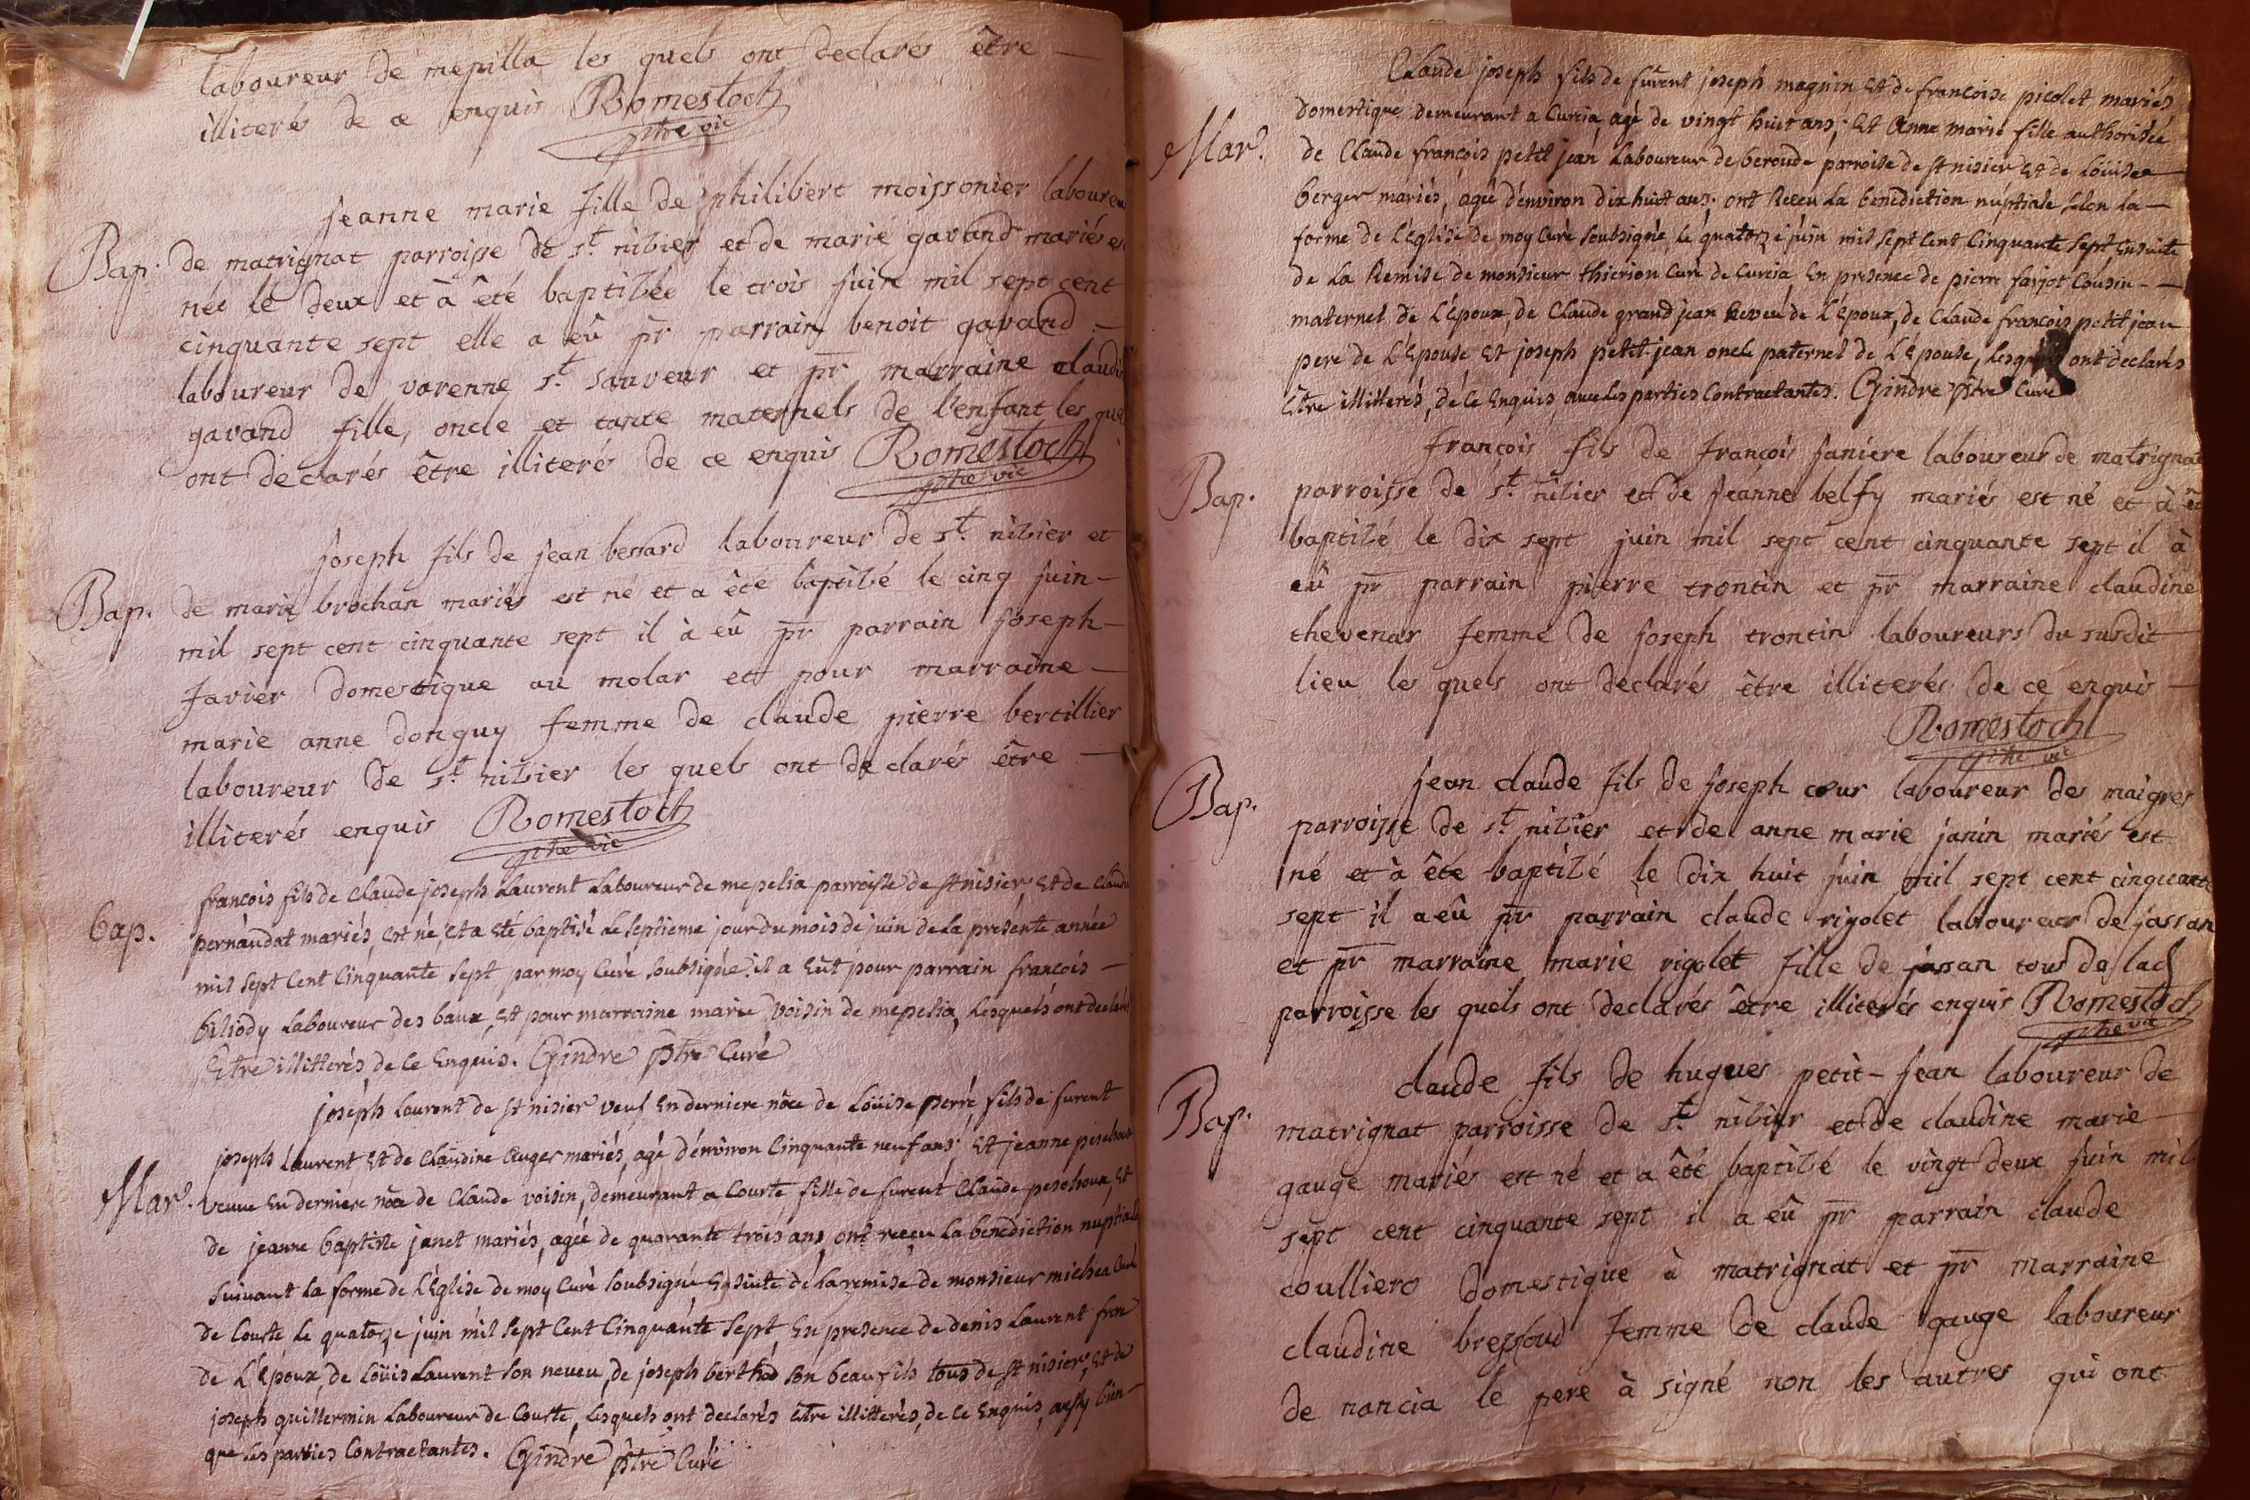 laboureur de mepilla les quels ont declarés être
illiterés de ce enquis Romestoch
ptre vic
jeanne marie fille de philibert moissonier laboureur
Bap. de matrignat parroisse de st. nibier et de marie gavand mariés et
née le deux et à été baptisée le trois juin mil sept cent
cinquante sept elle a eû pr parrain benoit gavand
laboureur de varenne st. sauveur et pr marraine claudi
gavand fille, oncle et tante maternels de l'enfant les que
ont declarés être illiterés de ce enquis Romestoch
ptre vic
joseph fils de jean bessard laboureur de st. nibier et
Bap. de marie brochan mariés est né et a été baptisé le cinq juin
mil sept cent cinquante sept il à eû pr parrain joseph
javier domestique au molar et pour marraine
marie anne donguy femme de claude pierre bertillier
laboureur de st. nibier les quels ont declarés être
illiterés enquis Romestoch
ptre vic
francois fils de Claude joseph Laurent Laboureur de mepelia parroisse de st nisier, Et de Claudi
bap. pernaudat mariés, est né, et a eté baptisé le septieme jour du mois de juin de la présente année
mil sept Cent Cinquante sept par moy Curé soubsigné: il a eût pour parrain francois
beliody Laboureur des baux, et pour marraine marie voisin de mepelia, Lesquels ont declaré
Etre illitterés, de ce Enquis. Gindre ptre Curé
joseph Laurent de st nisier veuf en derniere nôce de Loüise perré, fils de furent
joseph Laurent Et de Claudine Auger mariés, agé d'environ Cinquante neuf ans; Et jeanne
Mar. veuve en derniere nôce de Claude voisin, demeurant a Couste fille de furent Claude Et
de jeanne baptiste janet mariés, agée de quarante trois ans, ont receu la benediction nuptiale
suivant la forme de L'Eglise de moy Curé soubsigné Ensuite de la remise de monsieur michea Curé
de Couste Le quatorze juin mil sept Cent Cinquante sept En presence de denis Laurent frere
de L'Epoux, de Loüis Laurent son neveu, de joseph berthod son beau fils tous de st nisier, et de
joseph guillermin Laboureur de Couste, Lesquels ont declarés Etre illitterés, de ce Enquis, aussy bien
que Les parties Contractantes. Gindre ptre Curé
Claude joseph fils de furent joseph magnin Et de francoise picolet mariés
domestique demeurant a Curcia, agé de vingt huit ans; Et Anne marie fille authorisée
Mar. de Claude francois petit jean Laboureur de beroude parroisse de st nisier Et de Loüise
berger mariés, agée d'environ dix huit ans. ont Receu La benediction nuptiale selon La
forme de L'Eglise de moy Curé soubsigné, le quatorze juin mil sept Cent Cinquante sept, Ensuite
de La Remise de monsieur thierion Curé de Curcia, En presence de pierre farjot Cousin
maternel de L'Epoux, de Claude grand jean neveu de L'Epoux, de Claude francois petit jean
pere de L'Epouse Et joseph petit jean oncle paternel de L'Epouse, Lesquels ont declarés
Etre illitterés, de ce Enquis, avec les parties Contractantes. Gindre ptre Curé
françois fils de françois janiere laboureur de matrignat
Bap. parroisse de st. nibier et de jeanne belfy mariés est né et à été
baptisé le dix sept juin mil sept cent cinquante sept il à
eû pr parrain pierre trontin et pr marraine claudine
thevenar femme de joseph trontin laboureurs du susdit
lieu les quels ont declarés être illiterés de ce enquis
Romestoch
ptre vic
jean claude fils de joseph cour laboureur des maigres
Bap. parroisse de st. nibier et de anne marie janin mariés est
né et à été baptisé le dix huit juin mil sept cent cinquante
sept il a eû pr parrain claude rigolet laboureur de jassan
et pr marraine marie rigolet fille de jassan tous de lad
parroisse les quels ont declarés être illiterés enquis Romestoch
ptre vic
claude fils de hugues petit-jean laboureur de
Bap. matrignat parroisse de st. nibier et de claudine marie
gauge mariés est né et a été baptisé le vingt deux juin mil
sept cent cinquante sept il a eû pr parrain claude
coulliero domestique à matrignat et pr marraine
claudine bressoud femme de claude gauge laboureur
de nancia le pere à signé non les autres qui ont